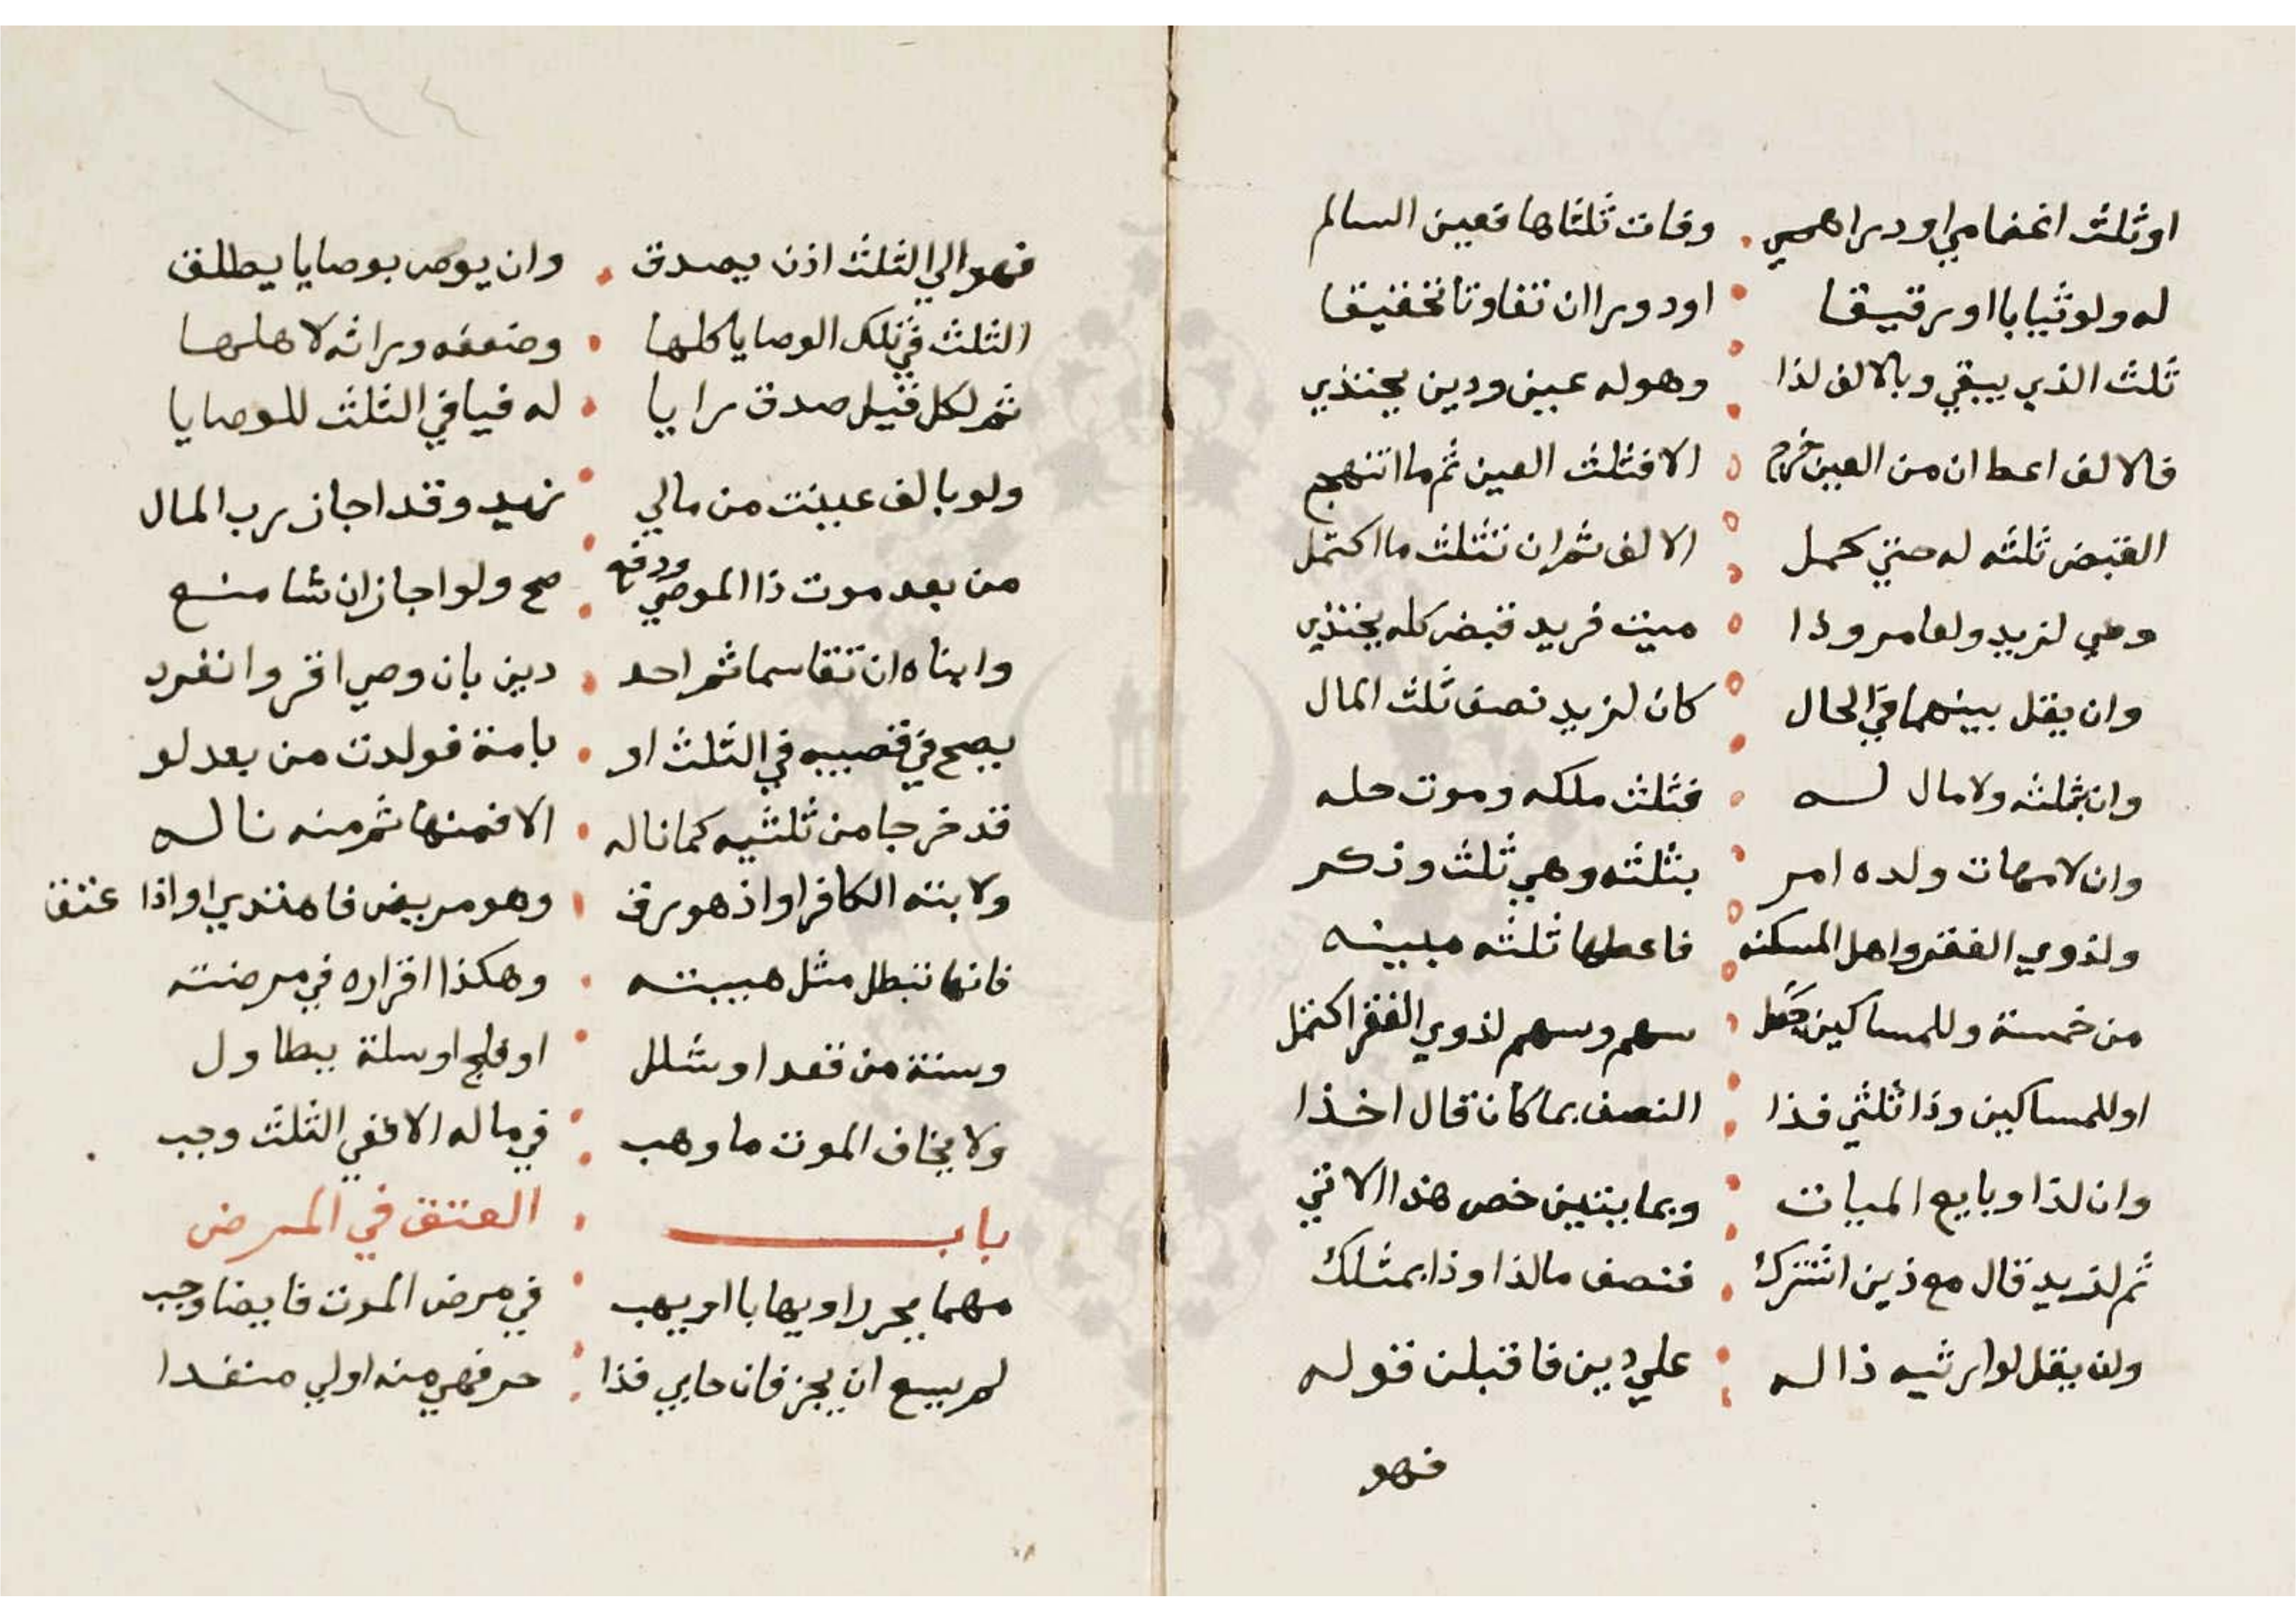 او ثلث اغنامي او دراهمي . وفات ثلثاها فعين السالم
له ولو ثيابا او رقيقا . او دورا ان تفاوتا تخفيقا
ثلث الذي يبقي وبالالف لذا . وهو له عين ودين يحتذي
فالالف اعط ان من العين خرج . الا فثلث العين ثم ما انتهج
القبض ثلثه له حتي كمل . الالف ثم ان تثلث ما اكتمل
وهي لزيد ولعامر وذا . ميت فزيد قبض كله يحتذي
وان يقل بينهما في الحال . كان لزيد نصف ثلث المال
وان بثلثه ولا مال له . فثلث ملكه وموت حله
وان لامهات ولده امر . بثلثه وهي ثلث وذكر
ولذوي الفقر واهل المسكنه . فاعطها ثلثه مبينه
من خمسة وللمساكين جعل . سهم وسهم لذوي الفقر اكتمل
او للمساكين وذا ثلثي فذا . النصف بما كان قال اخذا
وان لذا وبايع الميات . وبمايتين خص هذا الاتي
ثم لزيد قال مع ذين اشترك . فنصف ما لذا وذا بمثلك
وان يقل لوارثيه ذا له . علي دين فاقبلن قوله
فهو
فهو الي الثلث اذن يصدق . وان يوص بوصايا يطلق
الثلث في تلك الوصايا كلها . وضعفه وراثه لاهلها
ثم لكل قيل صدق رايا . له فيا في الثلث للموصايا
ولو بالف عينت من مالي . زيد وقد اجاز رب المال
من بعد موت ذا الموصي ودفعه . صح ولو اجاز ان شا منع
وابناه ان تقاسما ثم احد . دين بان وصي اقر وانفرد
يصح في قصيبه في الثلث او . بامنة فولدت من بعد لو
قد خرجا من ثلثيه كما ناله . الا فمنها ثم منه ناله
ولابنه الكافر او اذ هو رق . وهو مريض فاهتدي او اذا عتق
فانها تبطل مثل هبته . وهكذا اقراره في مرضته
وستة من قعد او شلل . او فلج او سلة بطاول
ولا يخاف الموت ما وهب . في ماله الا ففي الثلث وجب
باب . العتق في المرض
مهما يحرر او يهابا او يهب . في مرض الموت فايضا وجب
لم يسع ان يجز فان حابي فذا . حر فهي منه اولي منفدا